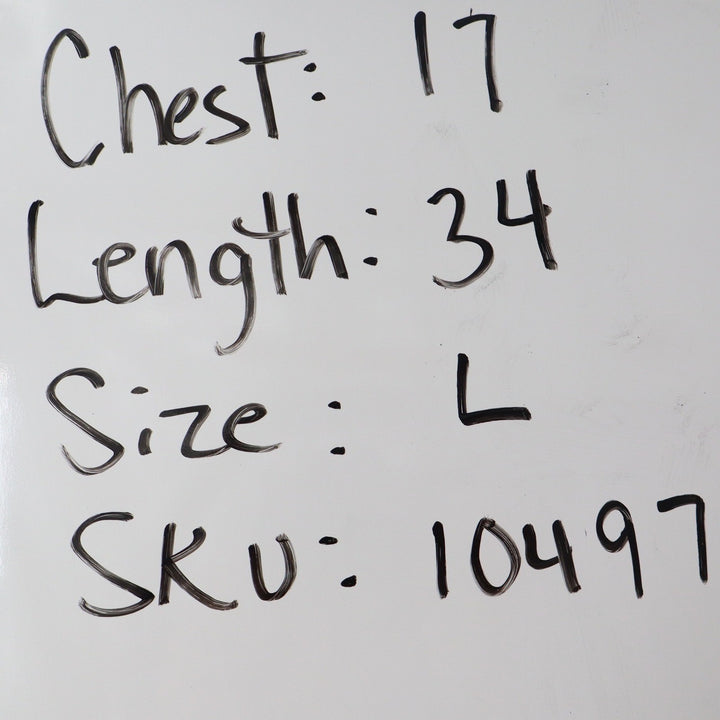 Chest: 17
Length: 34
Size: L
SKU: 10497